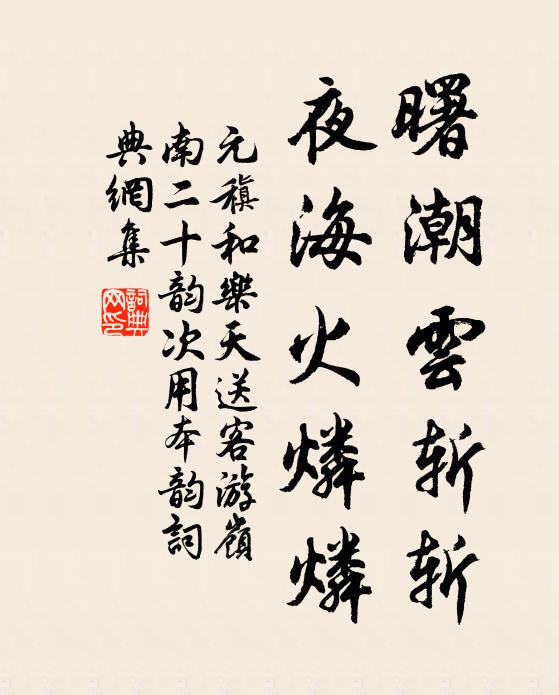 曙潮雲斬斬
夜海火燐燐
元稹和樂天送客游嶺
南二十韵次用本韵詞
典網集
詞典
网印